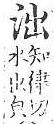 泏
知律切
水出皃